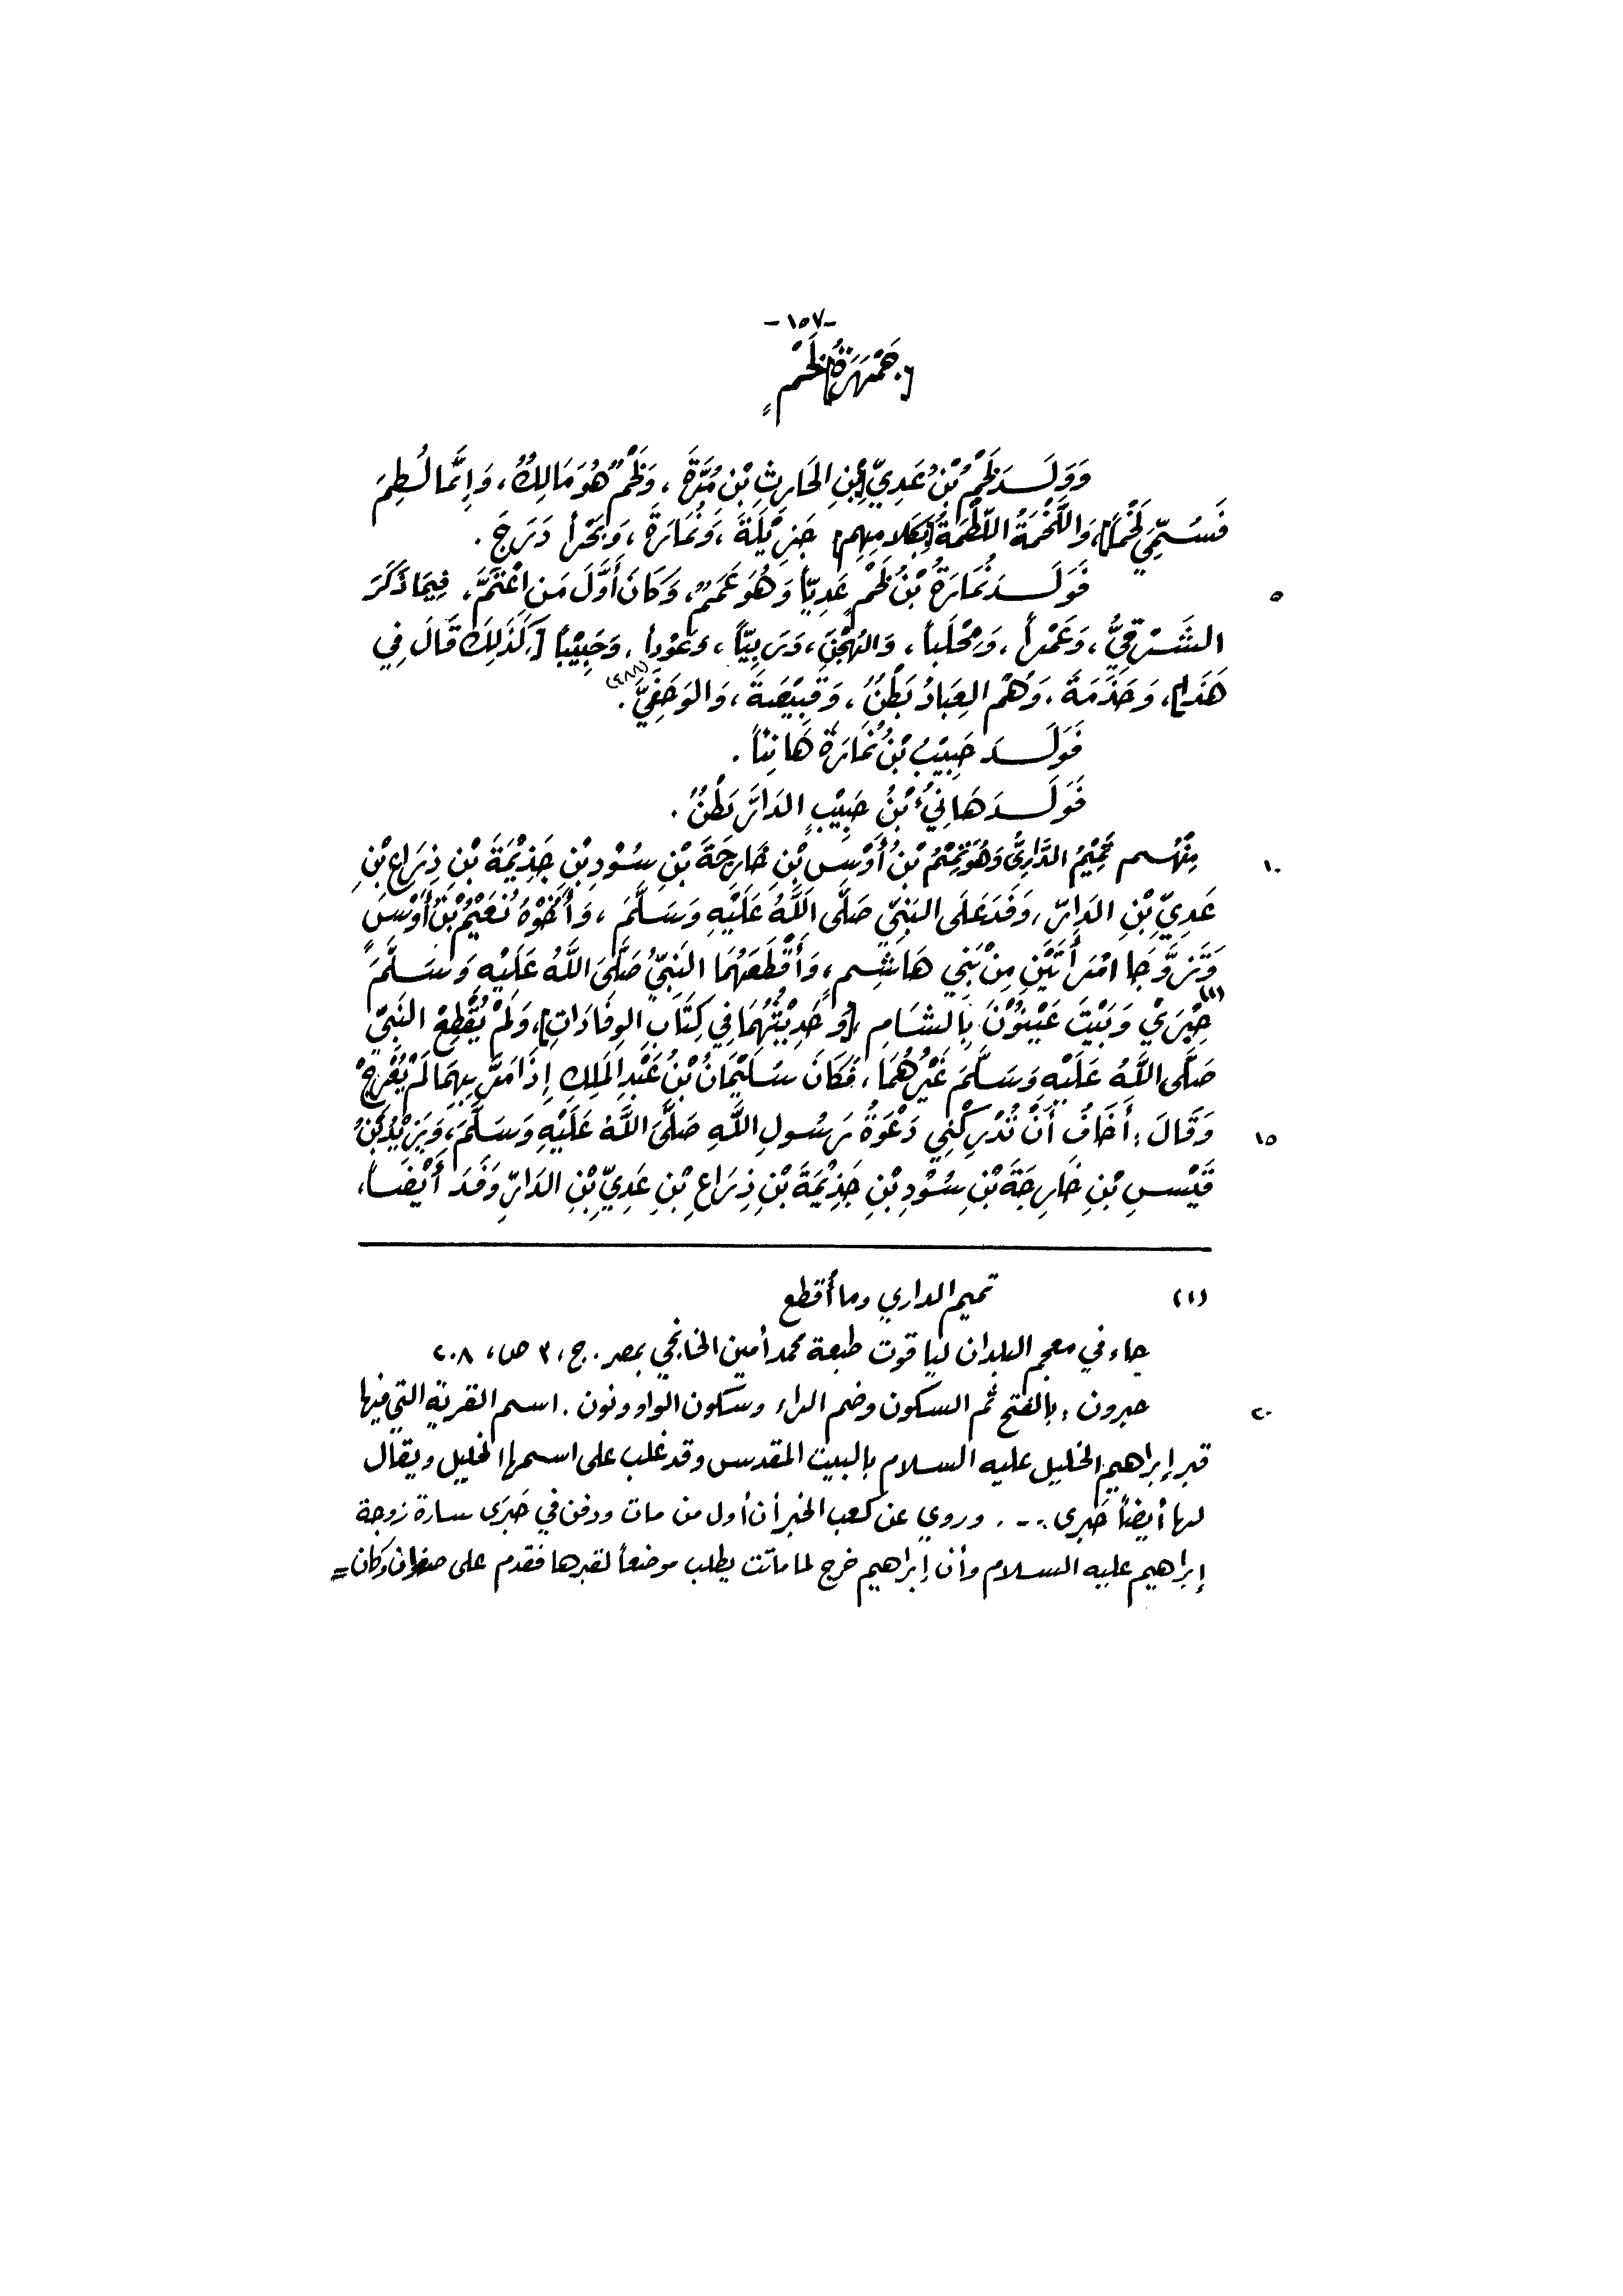 -١٥٧-
[جَمْهَرَةُ] لَخْمٍ
وَوَلَدَ لَخْمُ بْنُ عَدِيِّ [بْنِ الحَارِثِ بْنِ مُرَّةَ، وَلَخْمٌ هُوَ مَالِكٌ، وَإِنَّمَا لُطِمَ
فَسُمِّيَ لَخْماً]، وَاللَّخْمَةُ اللَّطْمَةُ [بِكَلامِهِم] جَزِيْلَةَ، وَنُمَارَةَ، وَبَحْراً دَرَجَ.
٥ فَوَلَدَ نُمَارَةُ بْنُ لَخْمٍ عَدِيّاً وَهُوَ عَمَمٌ، وَكَانَ أَوَّلَ مَنِ اعْتَمَّ، فِيمَا ذَكَرَ
الشَّرْقِيُّ، وَعَمْراً، وَمِحْلَباً، وَالهُجْنَ، وَرَبِيّاً، وَعَوْداً، وَحَبِيْباً [كَذَلِكَ قَالَ فِي
هَذَا]، وَحَذَمَةَ، وَهُمُ العِبَادُ بَطْنٌ، وَقَبِيْصَةَ، وَالوَحَفِيَّ.
فَوَلَدَ حَبِيْبُ بْنُ نُمَارَةَ هَانِئاً.
فَوَلَدَ هَانِئُ بْنُ حَبِيْبٍ الدَارَ بَطْنٌ.
١٠ مِنْهُم تَمِيْمُ الدَّارِيُّ وَهُوَ تَمِيْمُ بْنُ أَوْسِ بْنِ خَارِجَةَ بْنِ سُوْدِ بْنِ جَذِيْمَةَ بْنِ ذِرَاعِ بْنِ
عَدِيِّ بْنِ الدَارِ، وَفَدَ عَلَى النَبِيِّ صَلَّى اللَّهُ عَلَيْهِ وَسَلَّمَ، وَأَخُوْهُ نُعَيْمُ بْنُ أَوْسٍ
وَتَزَوَّجَا امْرَأَتَيْنِ مِنْ بَنِي هَاشِمٍ، وَأَقْطَعَهُمَا النَبِيُّ صَلَّى اللَّهُ عَلَيْهِ وَسَلَّمَ
حِبْرَىْ وَبَيْتَ عَيْنُوْنَ بِالشَامِ(١)، [وَحَدِيْثُهُمَا فِي كِتَابِ الوِفَادَاتِ]، وَلَمْ يُقْطِعْ النَبِيُّ
صَلَّى اللَّهُ عَلَيْهِ وَسَلَّمَ غَيْرَهُمَا، فَكَانَ سُلَيْمَانُ بْنُ عَبْدِ المَلِكِ إِذَا مَرَّ بِهِمَا لَمْ يُعَرِّجْ
١٥ وَقَالَ: أَخَافُ أَنْ تُدْرِكَنِي دَعْوَةُ رَسُولِ اللَّهِ صَلَّى اللَّهُ عَلَيْهِ وَسَلَّمَ، وَيَزِيْدُ بْنُ
قَيْسِ بْنِ خَارِجَةَ بْنِ سُوْدِ بْنِ جَذِيْمَةَ بْنِ ذِرَاعِ بْنِ عَدِيِّ بْنِ الدَارِ وَفَدَ أَيْضاً،
(١) تميم الداري وما أُقطع
جاء في معجم البلدان لياقوت طبعة محمد أمين الخانجي بمصر. ج، ٣ ص، ٢٠٨
٢٠ حبرون: بالفتح ثم السكون وضم الراء وسكون الواو ونون. اسم القرية التي فيها
قبر إبراهيم الخليل عليه السلام بالبيت المقدس وقد غلب على اسمها الخليل ويقال
لها أيضاً حَبرى... وروي عن كعب الخبر أن أول من مات ودفن في حَبرَى سارة زوجة
إبراهيم عليه السلام وأن إبراهيم خرج لما ماتت يطلب موضعاً لقبرها فقدم على صفوان وكان =